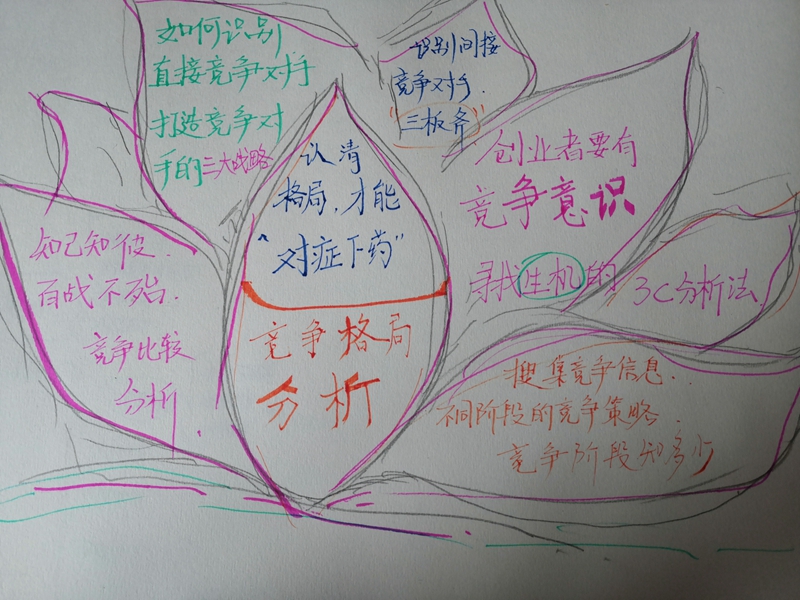 如何识别
直接竞争对手
打造竞争对
手的三大战略
识别间接
竞争对手.
“三板斧”
认清
格局,才能
“对症下药”
竞争格局
分析
创业者要有
竞争意识
寻找生机的
3C分析法
知己知彼.
百战不殆.
竞争比较
分析.
搜集竞争信息.
不同阶段的竞争策略.
竞争阶段知多少